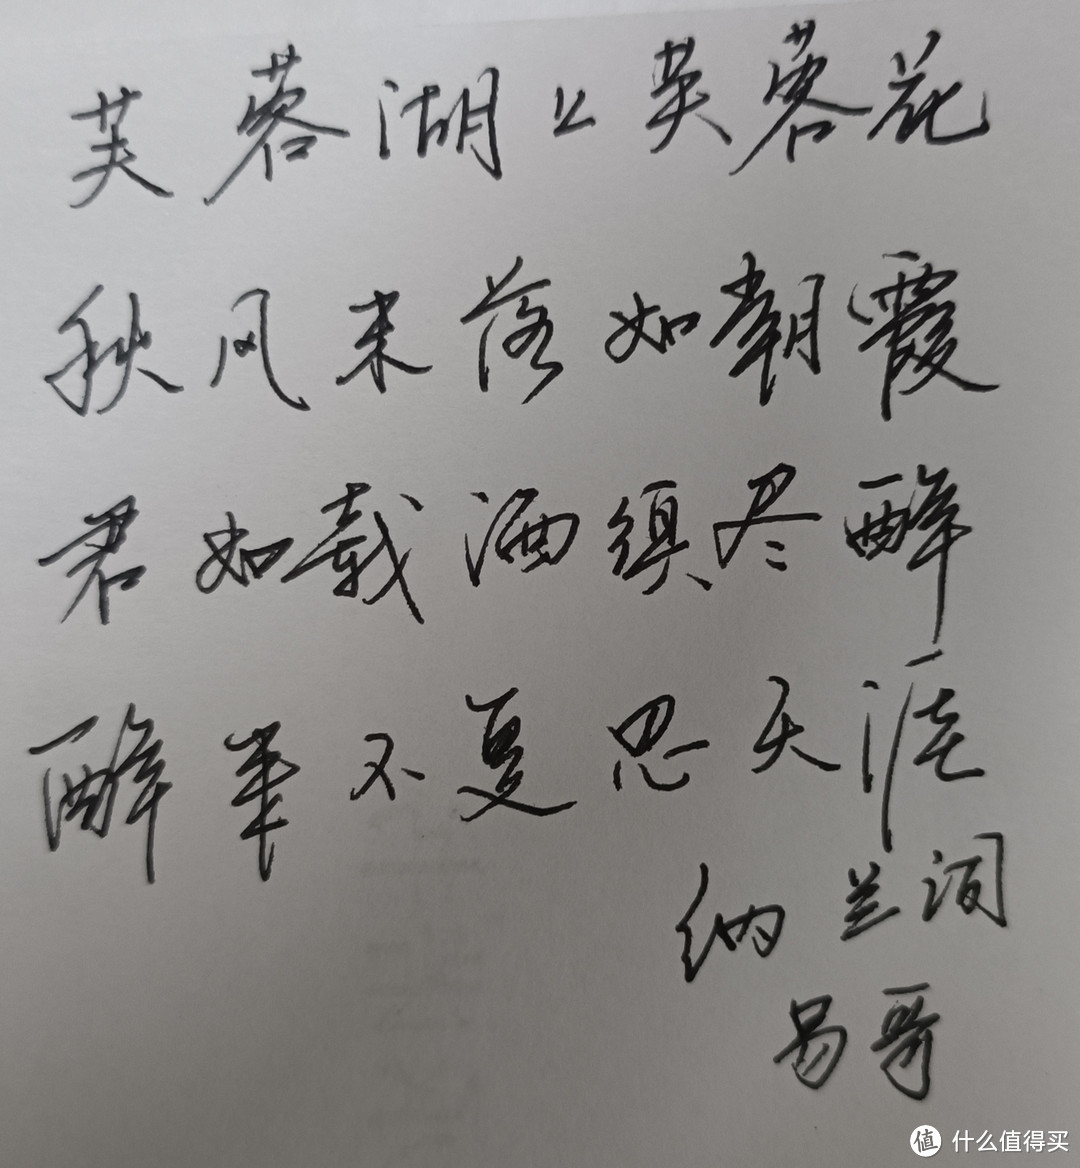 芙蓉湖上芙蓉花
秋风未落如朝霞
君如载酒须尽醉
醉来不复思天涯
纳兰词
易哥
值 什么值得买